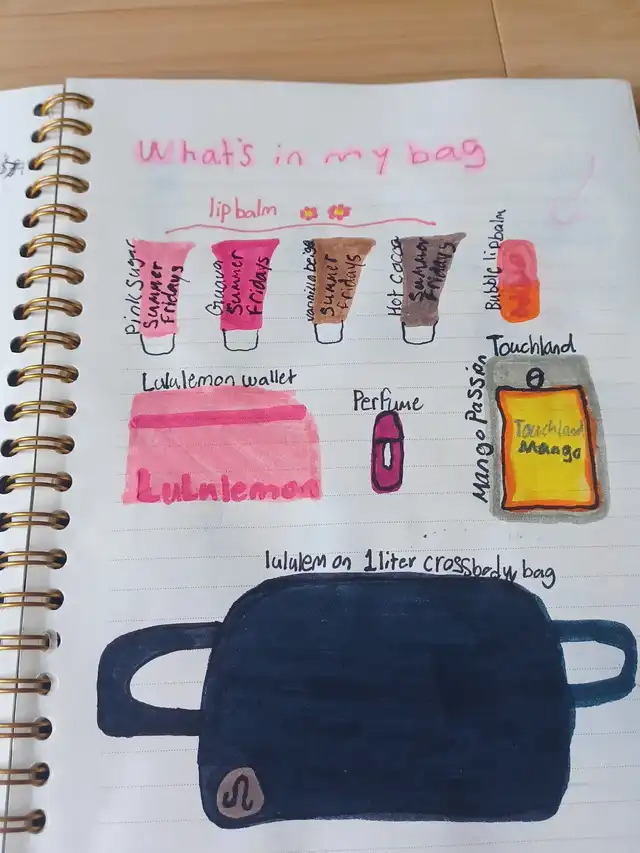 What's in my bag
lip balm
Pink Sugar
Summer
Fridays
Guava
Summer
Fridays
vanilla beige
Summer
Fridays
Hot Cocoa
Summer
Fridays
Bubble lip balm
Lululemon wallet
LuLulemon
Perfume
Touchland
Mango Passion
Touchland
Mango
lululemon 1 liter crossbody bag